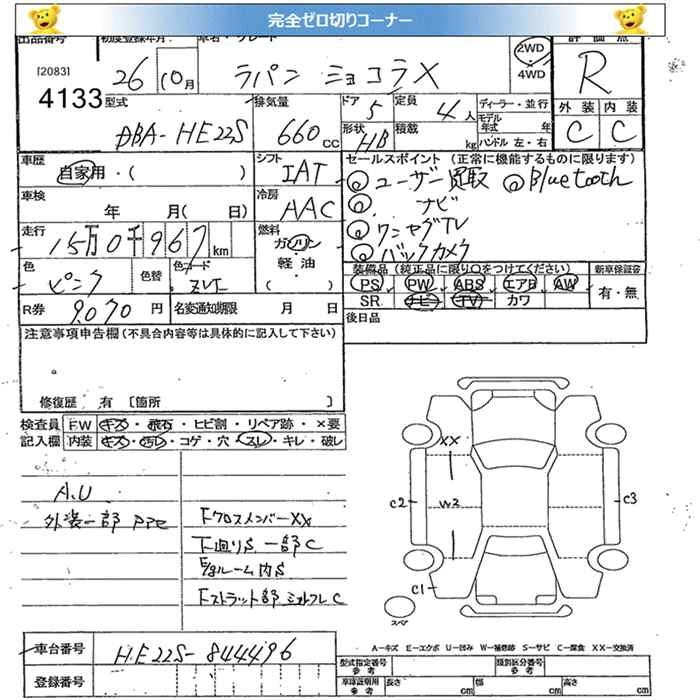 完全ゼロ切りコーナー
出品番号 初度登録年月 車名・グレード 評価点
[2083] 4133
26 10月 ラパン ショコラX 2WD・4WD R
型式 DBA-HE22S
排気量 660cc
ドア 5 定員 4人
形状 HB 積載 kg
ディーラー・並行
モデル年式 年
ハンドル 左・右
外装 内装
C C
車歴 自家用・( )
シフト IAT
車検 年 月(日)
冷房 AAC
走行 15万0千967km
燃料 ガソリン・軽油・( )
色 ピンク 色替 色コード ZVE
R券 9070円 名変通知期限 月 日
セールスポイント (正常に機能するものに限ります)
ユーザー買取 Bluetooth
ナビ
ワンセグTV
バックカメラ
装備品 (純正品に限り○をつけてください) 新車保証書
PS PW ABS エアB AW 有・無
SR ナビ TV カワ
後日品
注意事項申告欄(不具合内容等は具体的に記入して下さい)
修復歴 有 〔箇所 〕
検査員 F.W キズ・飛石・ヒビ割・リペア跡・×要
記入欄 内装 キズ・汚レ・コゲ・穴・スレ・キレ・破レ
A.U
外装一部
Fクロスメンバーxx
下廻りS 一部C
E/gルーム内S
Fストラット部 C
XX
W2
C2
C3
C1
スペア
A-キズ E-エクボ U-凹み W-補修跡 S-サビ C-腐食 XX-交換済
車台番号 HE22S-844496
登録番号
型式指定番号 参考 類別区分番号 参考
車庫証明用 参考 長さ cm 幅 cm 高さ cm